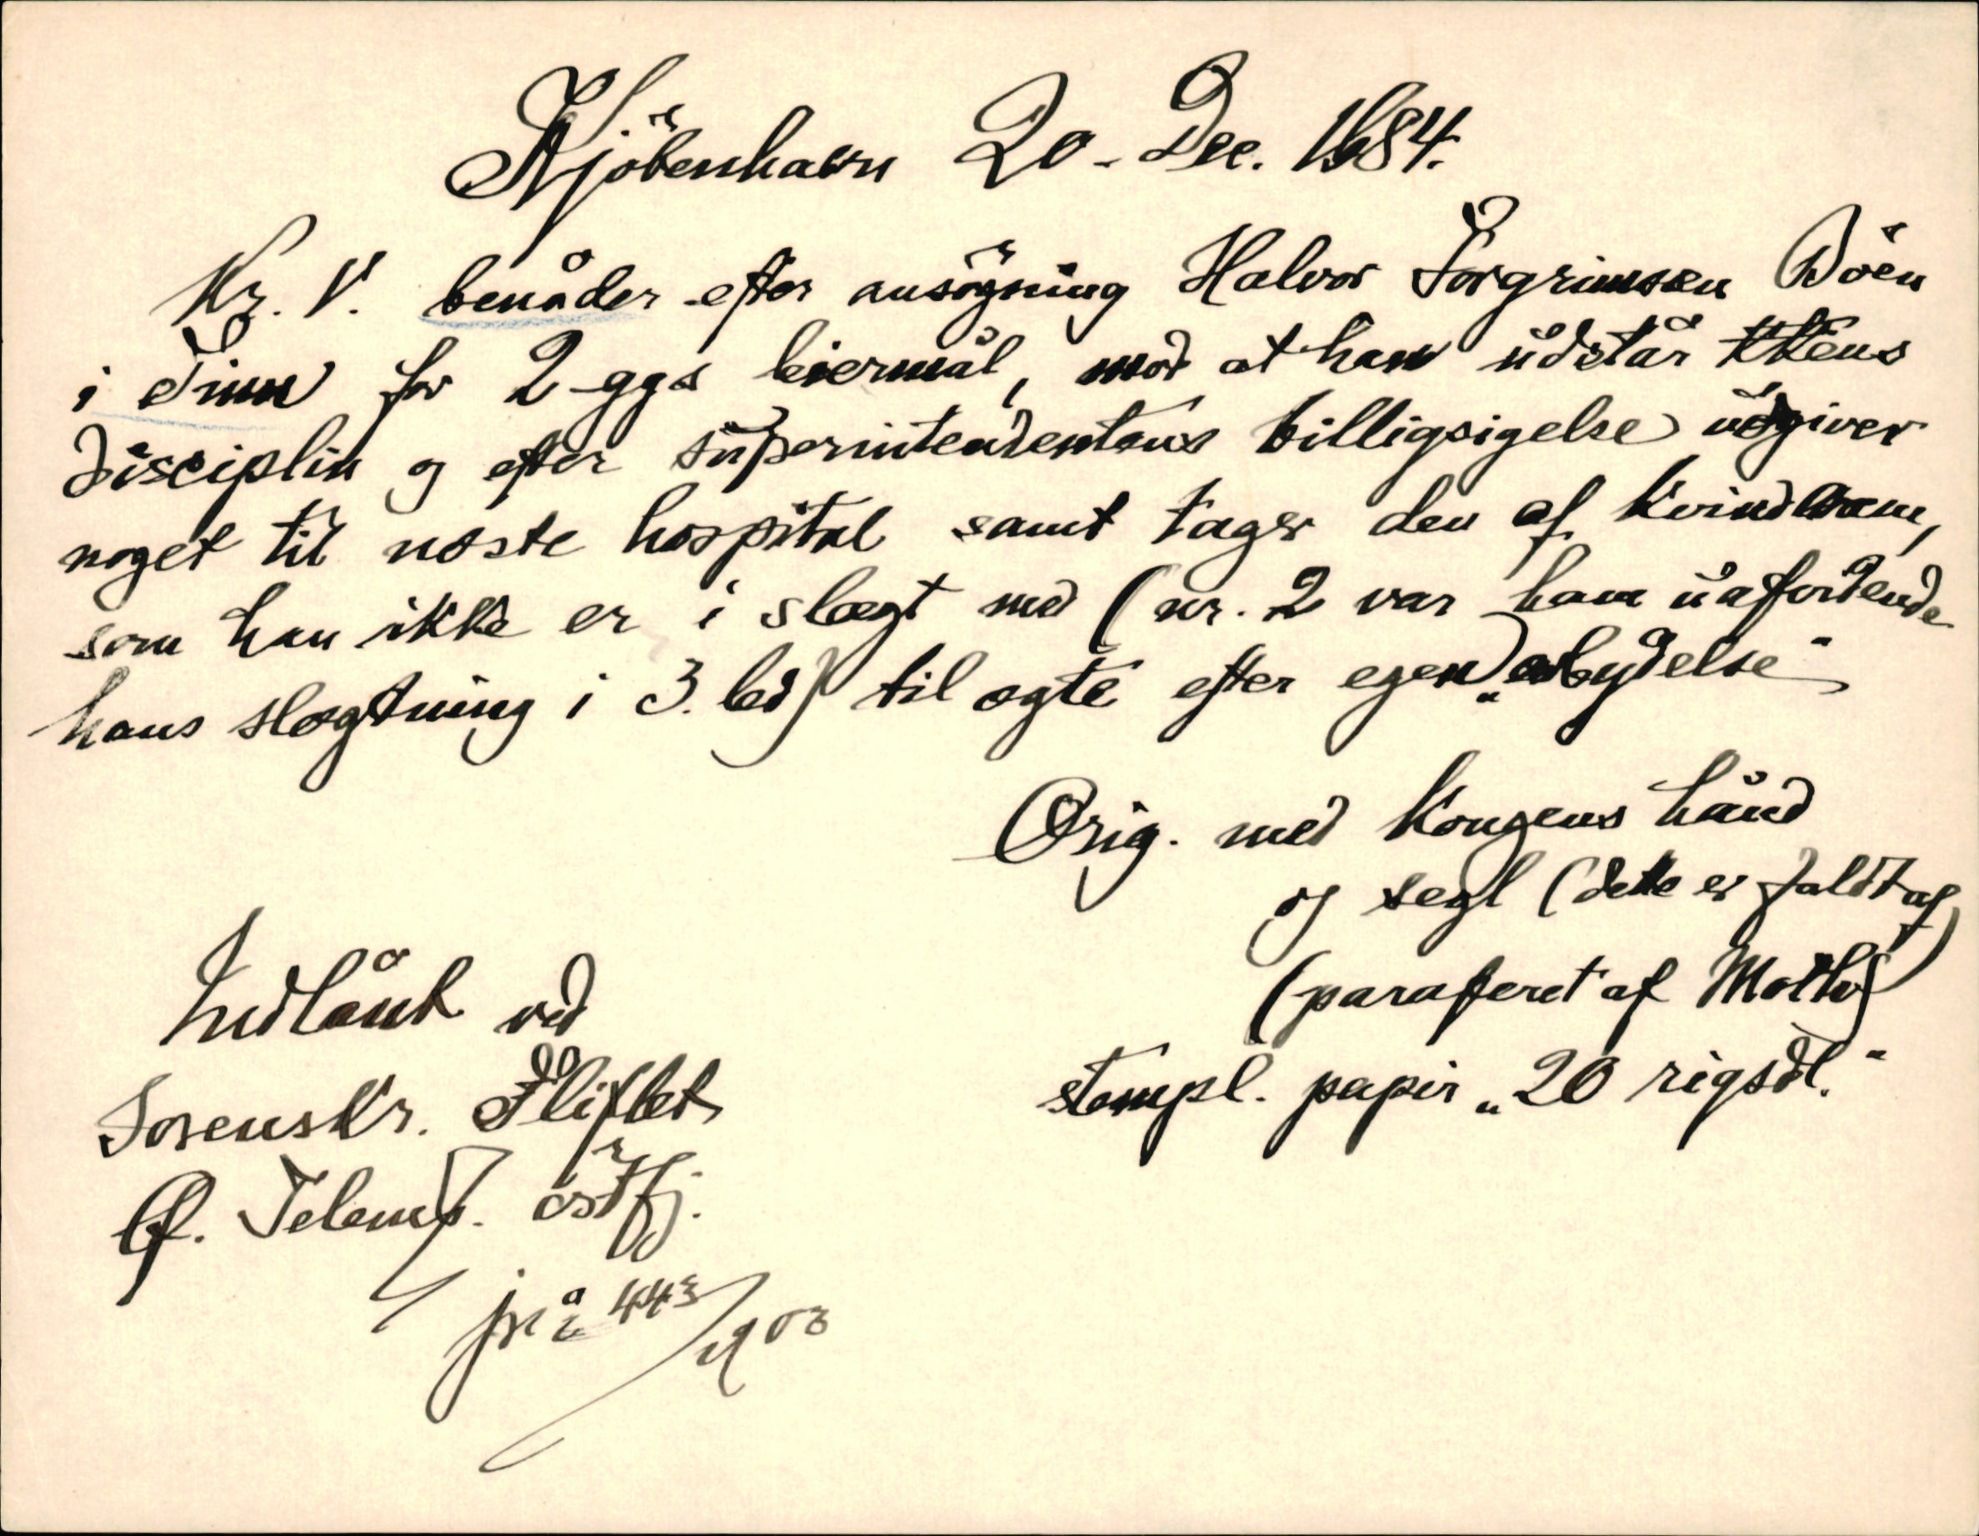 Kjöbenhavn 20. Dec. 1684.
Kr. V. benåder efter ansögning Halvor Torgrimsen Böen
i Tinn for 2 ggs leiermål, mod at han udstår kkens
disciplin og efter superintendentens billigsigelse udgiver
noget til næste hospital samt tager den af kvinderne,
som han ikke er i slægt med (nr. 2 var ham uafvidende
hans slægtning i 3. led) til ægte efter egen "erbydelse"
Orig. med kongens hånd
og segl (dette er faldt af)
(paraferet af Moth)
stempl. papir "20 rigsdl."
Indlånt ved
Sorenskr. Fliflet,
Ø. Telem. östfj.
jr. å 443/1903